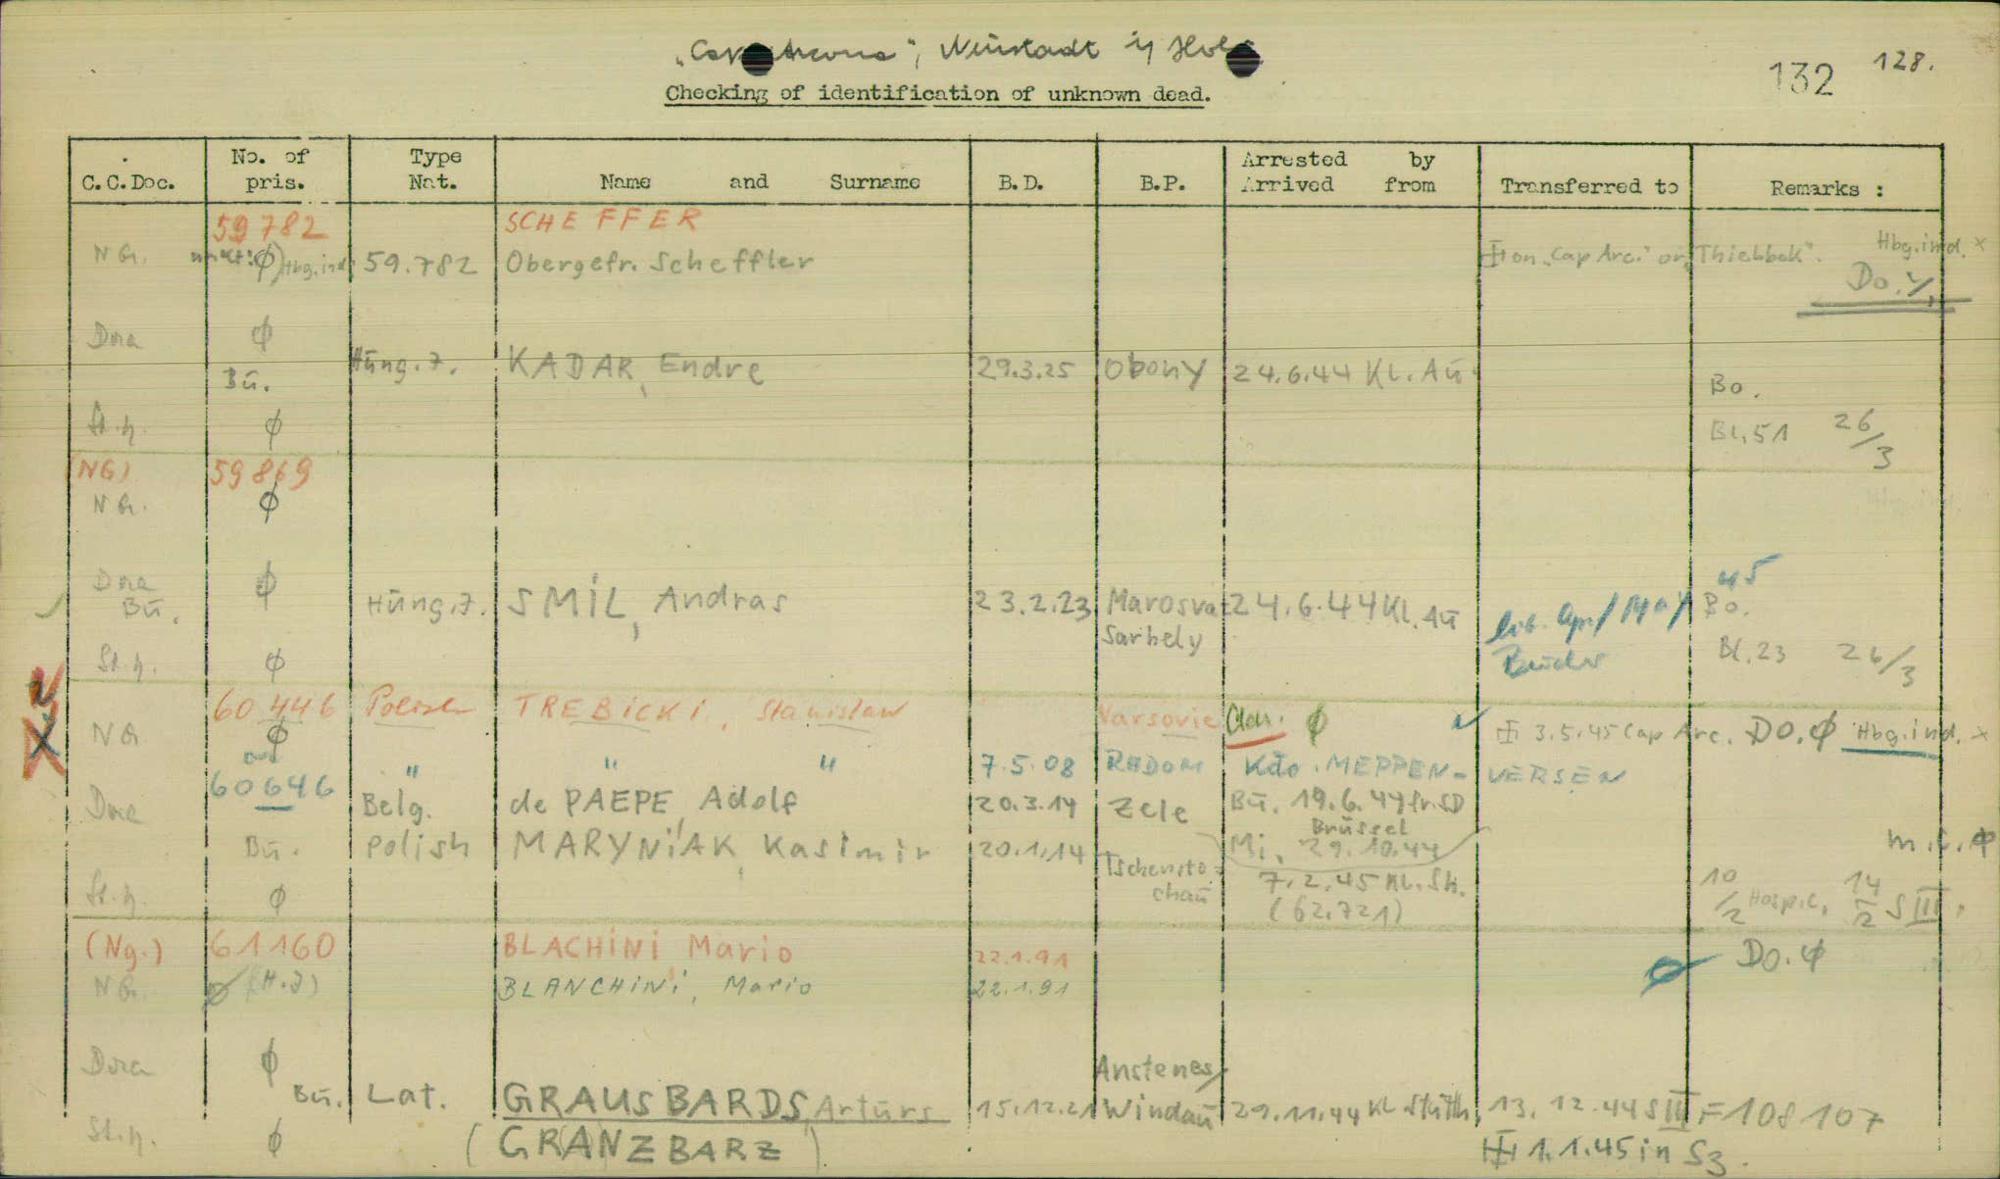 "Cap Arcona", Neustadt i/ Hols
132 128.
Checking of identification of unknown dead.
C.C.Doc. No. of pris. Type Nat. Name and Surname B.D. B.P. Arrested by Arrived from Transferred to Remarks :
59 782 SCHEFFER
N G. Φ Hbg.ind 59.782 Obergefr. Scheffler on "Cap Arc." or "Thielbek". Hbg.ind. x
Do. y.
Dora Φ
Bü. Hüng. J. KADAR, Endre 29.3.25 Obony 24.6.44 KL. Aü Bo.
St.h. Φ Bl. 51 26/3
(NG) 59869
N G. Φ
Dora Φ 45
Bü. Hüng. J. SMIL, Andras 23.2.23 Marosva- 24.6.44 KL. Aü lib. Apr/May Bo.
Sarhely
St.h. Φ Bl. 23 26/3
60 446 Polish TREBICKI, Stanislaw Varsovie Φ
N G Φ 3.5.45 Cap Arc. DO. Φ Hbg.ind. x
and
60646 " " " 7.5.08 RADOM Kdo. MEPPEN-VERSEN
Dora Belg. de PAEPE, Adolf 20.3.14 Zele Bü. 19.6.44 fr. SD
Brüssel
Bü. Polish MARYNIAK, Kasimir 20.1.14 Tschensto-chaü Mi. 29.10.44 m.c. Φ
7.2.45 KL. St.
St.h. Φ (62.721) 10/2 Hospic, 14/2 S III.
(Ng.) 61160 BLACHINI Mario 22.1.91 Do. Φ
N G. Φ (H.J) BLANCHINI, Mario 22.1.91 Φ
Dora Φ
Bü. Lat. GRAUSBARDS, Arturs 15.12.21 Anstenes/Windaü 29.11.44 KL Stütth. 13.12.44 S III = 108 107
St.h. Φ (GRANZBARZ) 1.1.45 in S3.